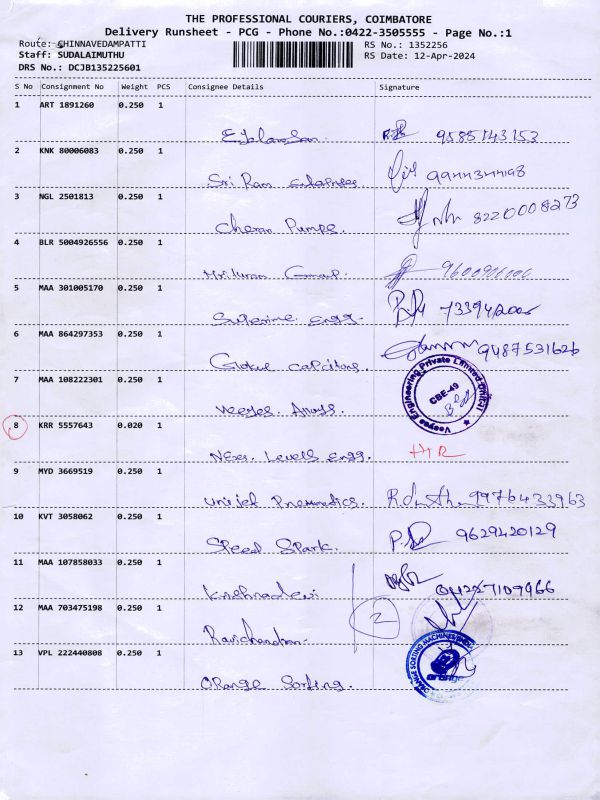 THE PROFESSIONAL COURIERS, COIMBATORE
Delivery Runsheet - PCG - Phone No.:0422-3505555 - Page No.:1
Route: CHINNAVEDAMPATTI RS No.: 1352256
Staff: SUDALAIMUTHU RS Date: 12-Apr-2024
DRS No.: DCJB135225601
S No Consignment No Weight PCS Consignee Details Signature
1 ART 1891260 0.250 1
9585143153
2 KNK 80006083 0.250 1
Sri Ram
3 NGL 2501813 0.250 1
Cheran Pumps. 8220008273
4 BLR 5004926556 0.250 1
5 MAA 301005170 0.250 1
Supreme Engg.
6 MAA 864297353 0.250 1
9487531626
7 MAA 108222301 0.250 1
Veeyes Engineering Private Limited Unit-I
CBE-49
8 KRR 5557643 0.020 1
Levells Engg.
9 MYD 3669519 0.250 1
Unijet Pneumatics. 9976433963
10 KVT 3058062 0.250 1
Speed Spark. 9629420129
11 MAA 107858033 0.250 1
Krishnadevi
12 MAA 703475198 0.250 1
Ravichandran 2
13 VPL 222440808 0.250 1
Orange Sorting.
ORANGE SORTING MACHINES
orange